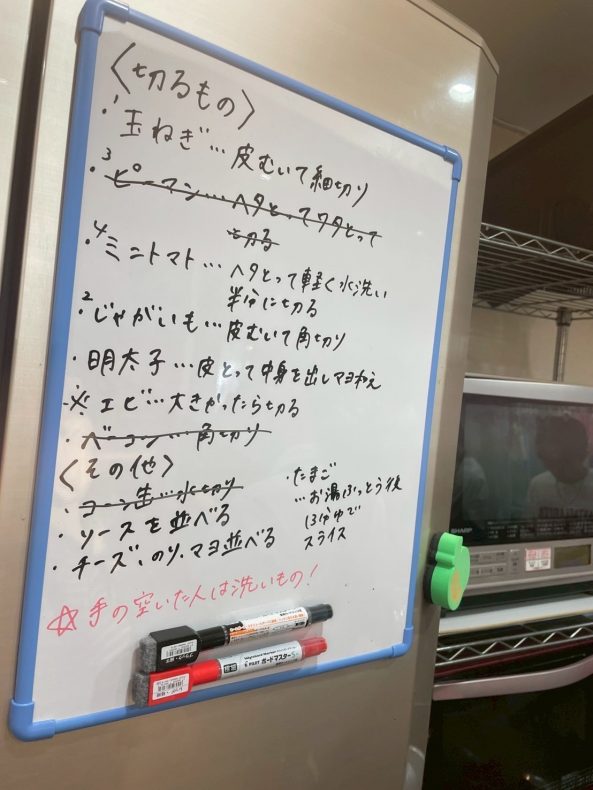 〈切るもの〉
・1玉ねぎ…皮むいて細切り
・3ピーマン…ヘタとってワタとって
切る
・4ミニトマト…ヘタとって軽く水洗い
半分に切る
・2じゃがいも…皮むいて角切り
・明太子…皮とって中身を出しマヨ和え
・※エビ…大きかったら切る
・ベーコン…角切り
〈その他〉
・コーン缶…水切り
・ソースを並べる
・チーズ、のり、マヨ並べる
・たまご
…お湯ふっとう後
スライス
☆手の空いた人は洗いもの!
PILOT ボードマスター
SHARP